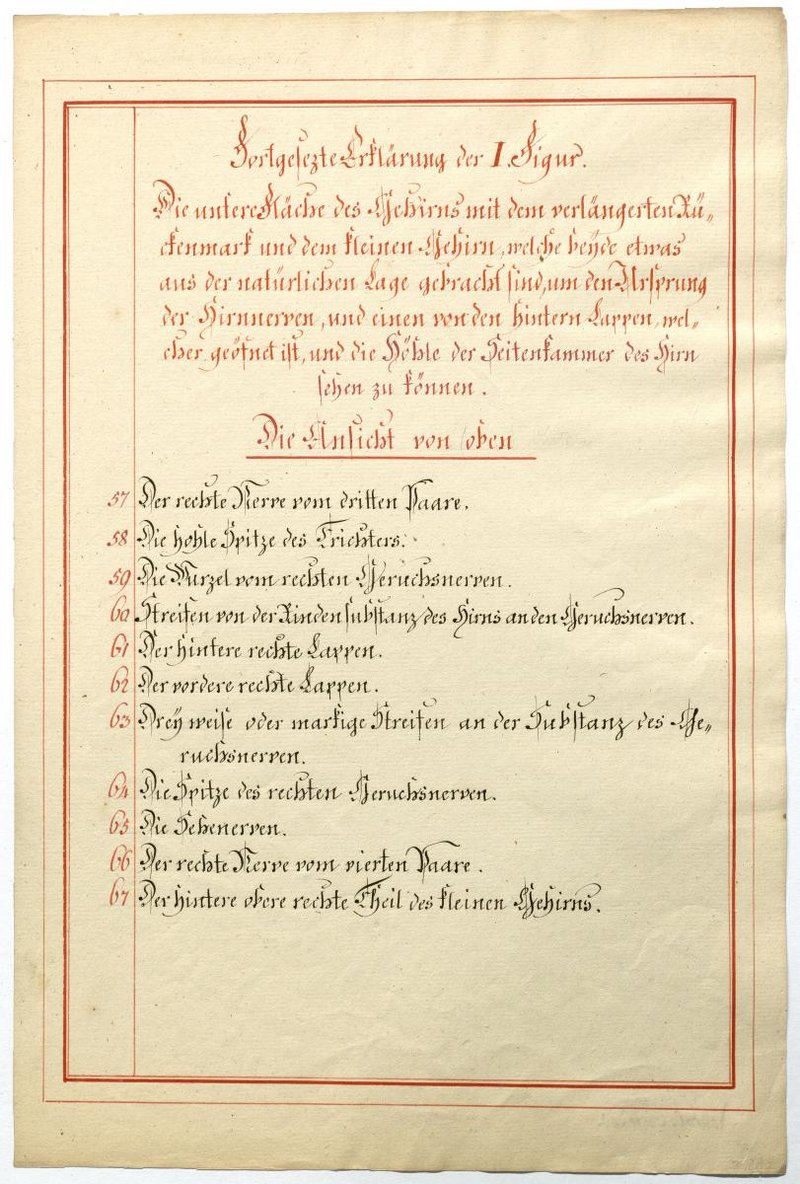 Fortgesezte Erklärung der I. Figur.
Die untere Fläche des Gehirns mit dem verlängerten Rü„
ckenmark und dem kleinen Gehirn, welche beyde etwas
aus der natürlichen Lage gebracht sind, um den Ursprung
der Hirnnerven, und einen von den hintern Lappen, wel„
cher, geöfnet ist, und die Höhle der Seitenkammer des Hirn
sehen zu können.
Die Ansicht von oben
57 Der rechte Nerve vom dritten Paare.
58 Die hohle Spitze des Trichters.
59 Die Wurzel vom rechten Geruchsnerven.
60 Streifen von der Rindensubstanz des Hirns an den Geruchsnerven.
61 Der hintere rechte Lappen.
62 Der vordere rechte Lappen.
63 Drey weise oder markige Streifen an der Substanz des Ge„
ruchsnerven.
64 Die Spitze des rechten Geruchsnerven.
65 Die Sehenerven.
66 Der rechte Nerve vom vierten Paare.
67 Der hintere obere rechte Theil des kleinen Gehirns.